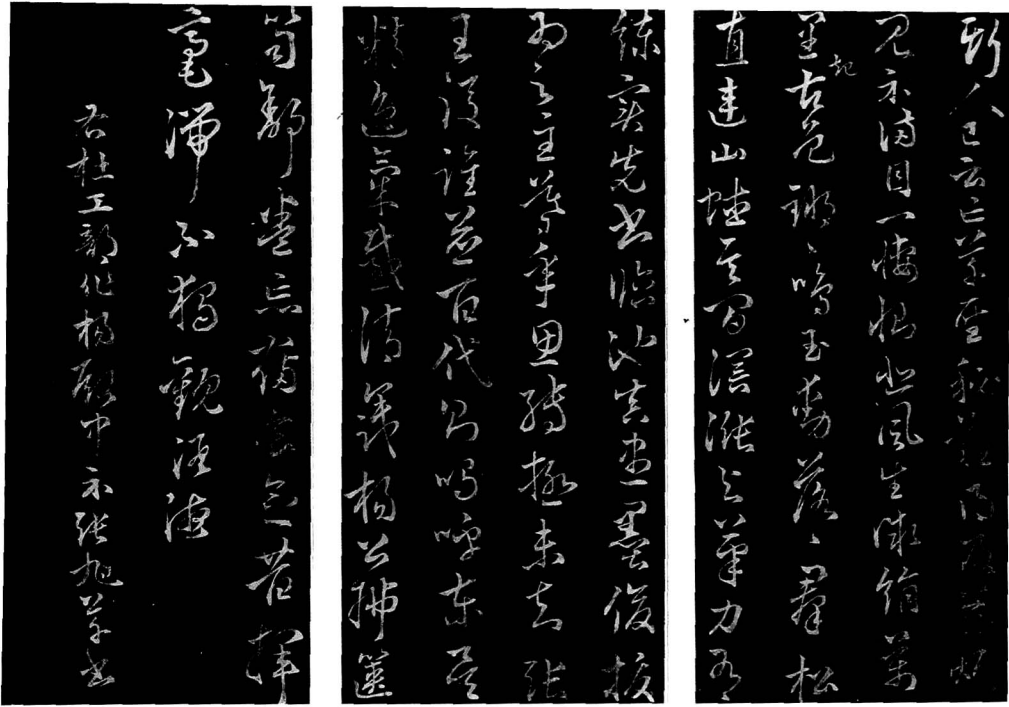 斯人已云亡草聖秘難得及茲煩
見示滿目一悽惻悲風生微綃萬
里起古色鏘〻鳴玉動落〻群松
直連山蟠其間溟漲與筆力有
練實先書臨池真盡墨俊拔
為之主暮年思轉極未知張
王後誰並百代則嗚呼東吳
精逸氣感清識楊公拂篋
笥舒卷忘寢食念昔揮
毫端不獨觀酒德
右杜工部作楊殿中示張旭草書